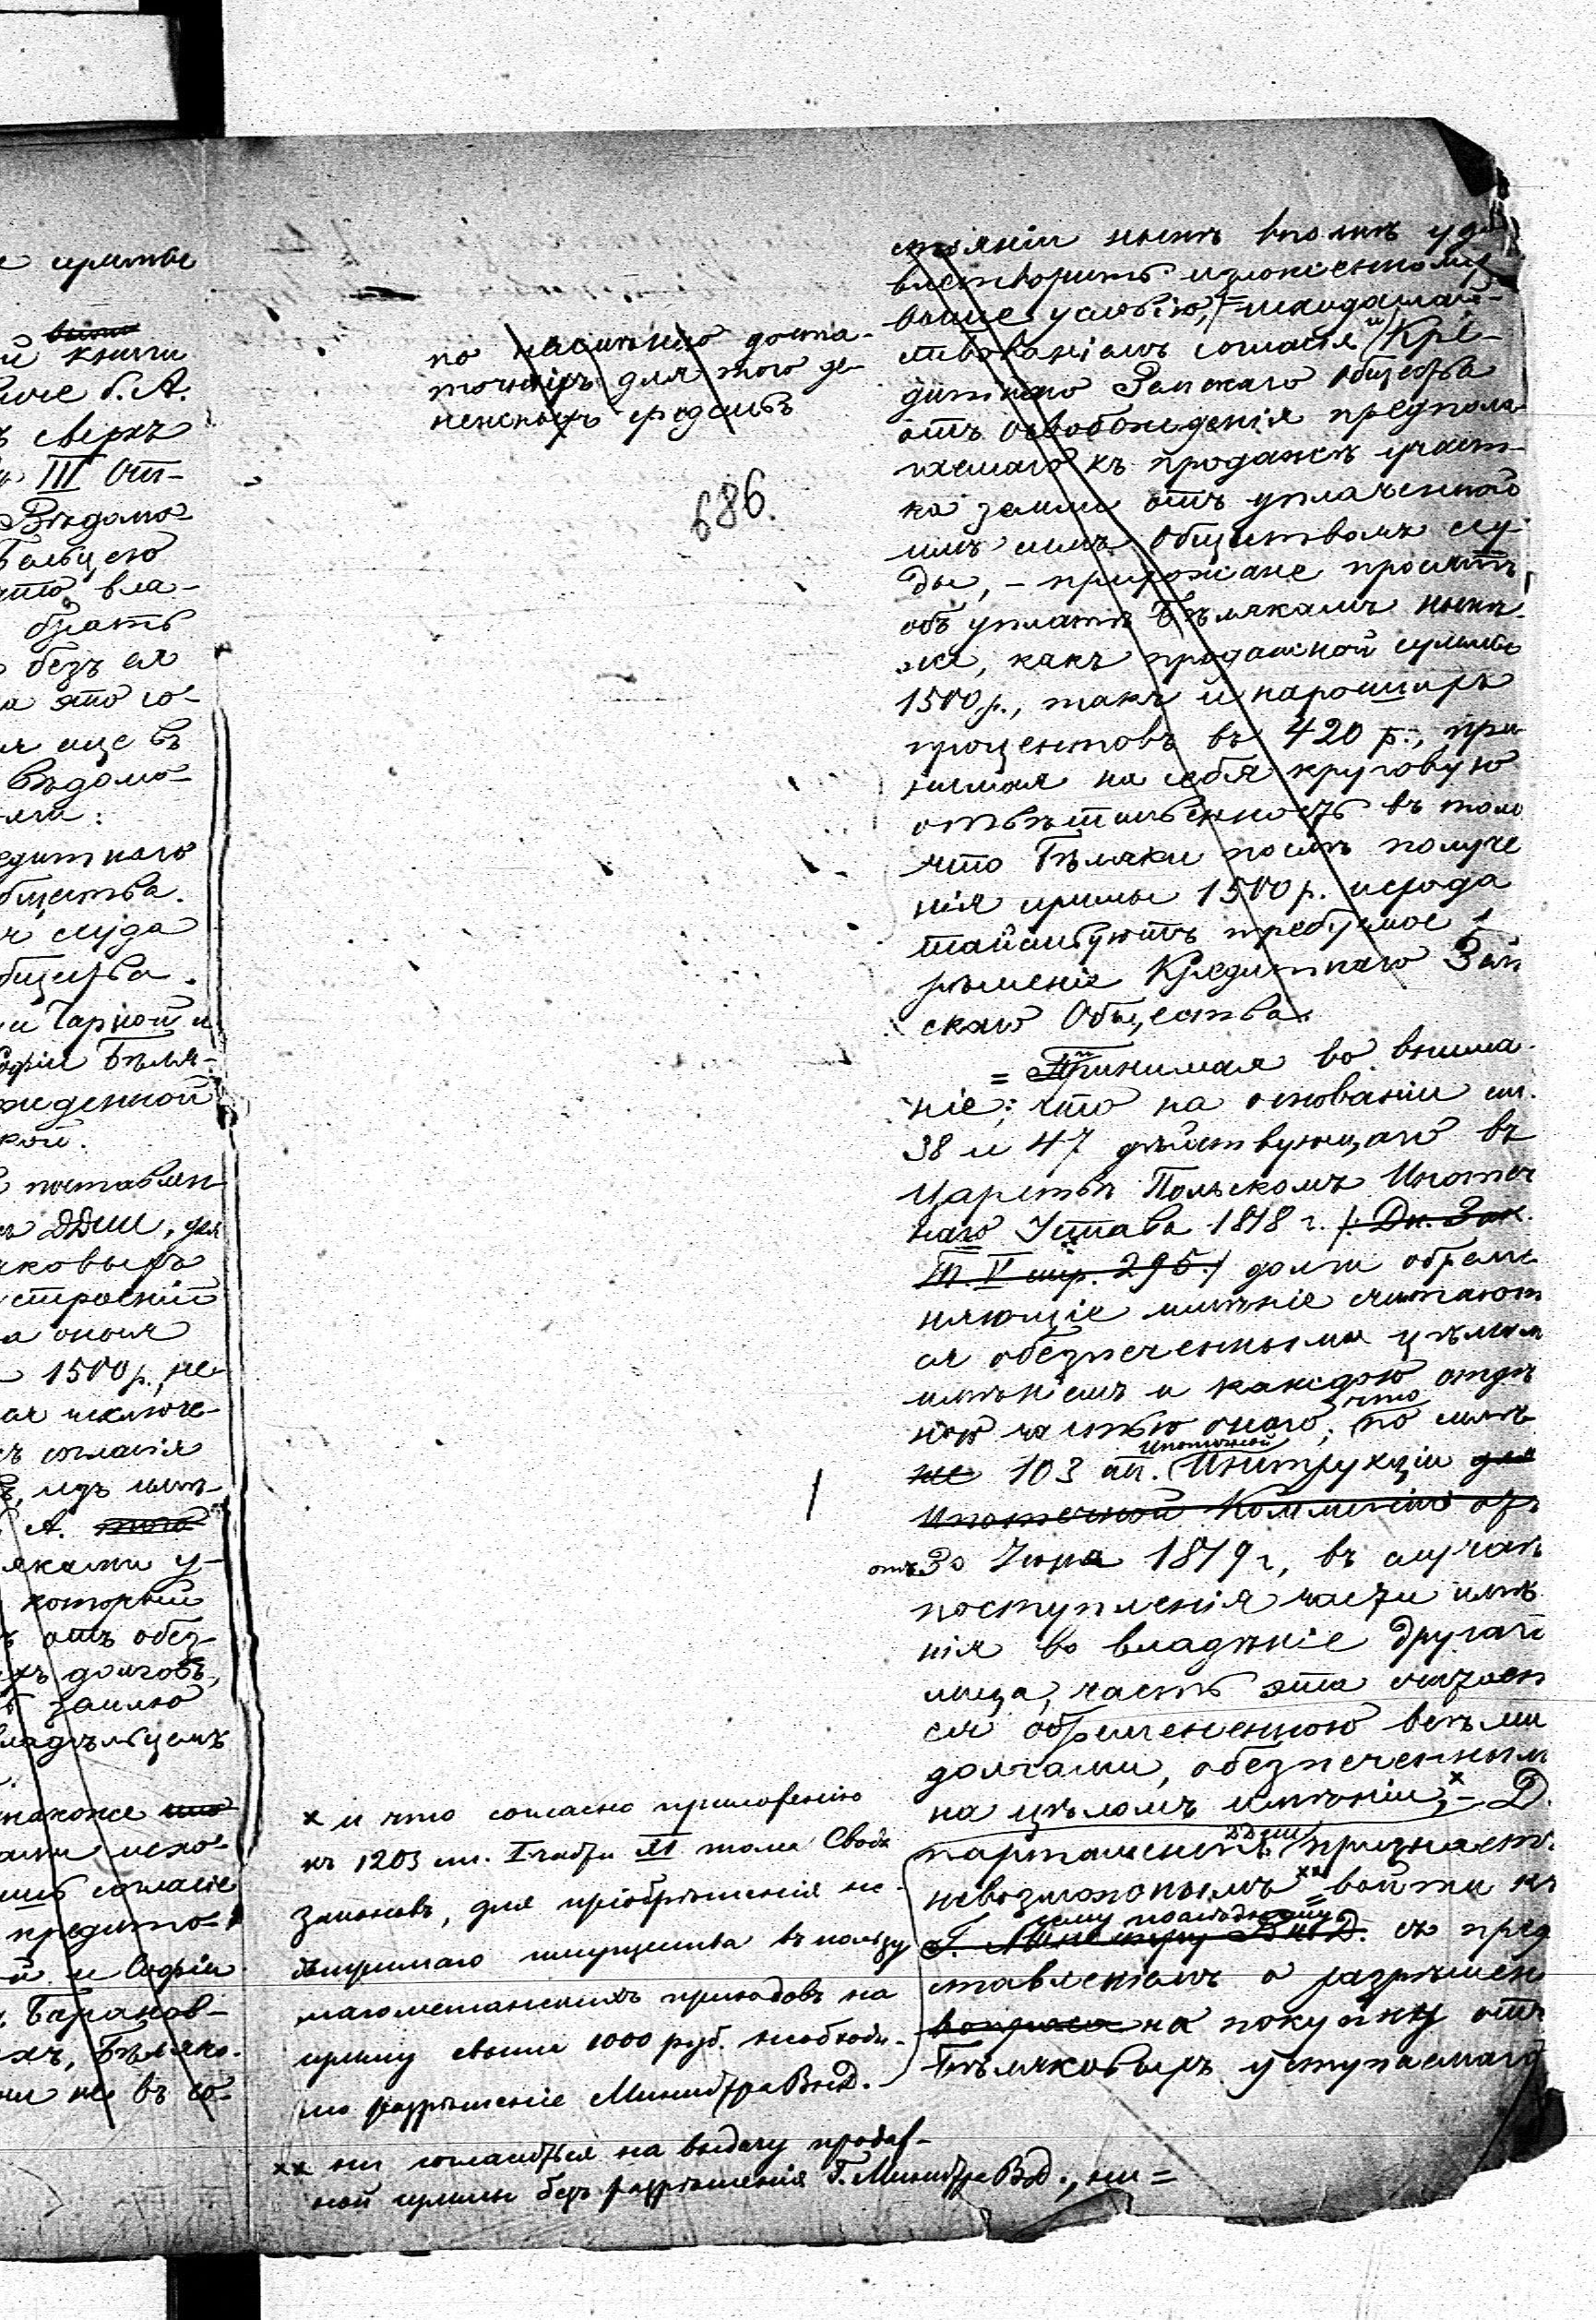 е цѣлые
было
й книги
б. А.
ъ сверхъ
III От-
Вѣдомо-
вла-
брать
безъ ея
а это со-
еще въ
Вѣдомо-
редитнаго
бщества.
ссуда
бщества.
и Чарной и
Софіи Бѣля-
жденной
кой.
поставлен-
ДДИИ, для
яковыхъ
строеній
а оныя
1500 р., не-
исключе-
согласія
А. того
яками у-
который
отъ обез-
хъ долговъ,
землю
владѣльцемъ
также
согласіе
кредито-
й и Софіи
Баранов-
хъ, Бѣляко-
ни не въ со-
по неимѣнію доста-
точныхъ для того де-
нежныхъ средствъ
686.
стояніи нынѣ вполнѣ удо
влетворить изложенному
выше условію, = исходатай-
ствованіемъ согласія Кре-
дитнаго Земскаго Общества
отъ освобожденія предпола-
гаемаго къ продажѣ участ-
ка земли отъ уплаченной
имъ симъ Обществомъ ссу-
ды, – прихожане просятъ
объ уплатѣ Бѣлякамъ нынѣ
же, какъ продажной суммы
1500 р., такъ и наросшихъ
процентовъ въ 420 р., при
нимая на себя круговую
отвѣтственность въ томъ
что Бѣляки послѣ получе
нія суммы 1500 р. исхода
тайствуютъ требуемое
рѣшеніе Кредитнаго Зем
скаго Общества.
= Принимая во внима-
ніе: что на основаніи ст.
38 и 47 дѣйствующаго въ
Царствѣ Польскомъ Ипотеч
наго Устава 1818 г. /: Дн. Зак.
Т. V стр. 295:/ долги обреме
няющіе имѣніе считают
ся обезпеченными цѣлымъ
имѣніемъ и каждою отдѣ
ной частью онаго; что по силѣ
же 103 ст. Ипотечной Инструкціи для
Ипотечной Коммисіи отъ
отъ 30 Іюня 1819 г., въ случаѣ
поступленія части имѣ
нія во владѣніе другаго
лица, часть эта считает
ся обремененною всѣми
долгами, обезпеченными
на цѣломъ имѣніи, x – Д.
партаментъ ДДИИ признаетъ
невозможнымъ xx = войти къ
сему послѣднему
Г. Министру ВнД. съ пред
ставленіемъ о разрѣшен
вопроса на покупку отъ
Бѣляковыхъ уступаемаго
x и что согласно приложенію
къ 1203 ст. I части XI тома Свода
Законовъ, для пріобрѣтенія не-
движимаго имущества въ пользу
магометанскихъ приходовъ на
сумму свыше 1000 руб. необходи-
мо разрѣшеніе Министра ВнД.
xx ни согласиться на выдачу продаж-
ной суммы безъ разрѣшенія Г. Министра ВнД., ни =